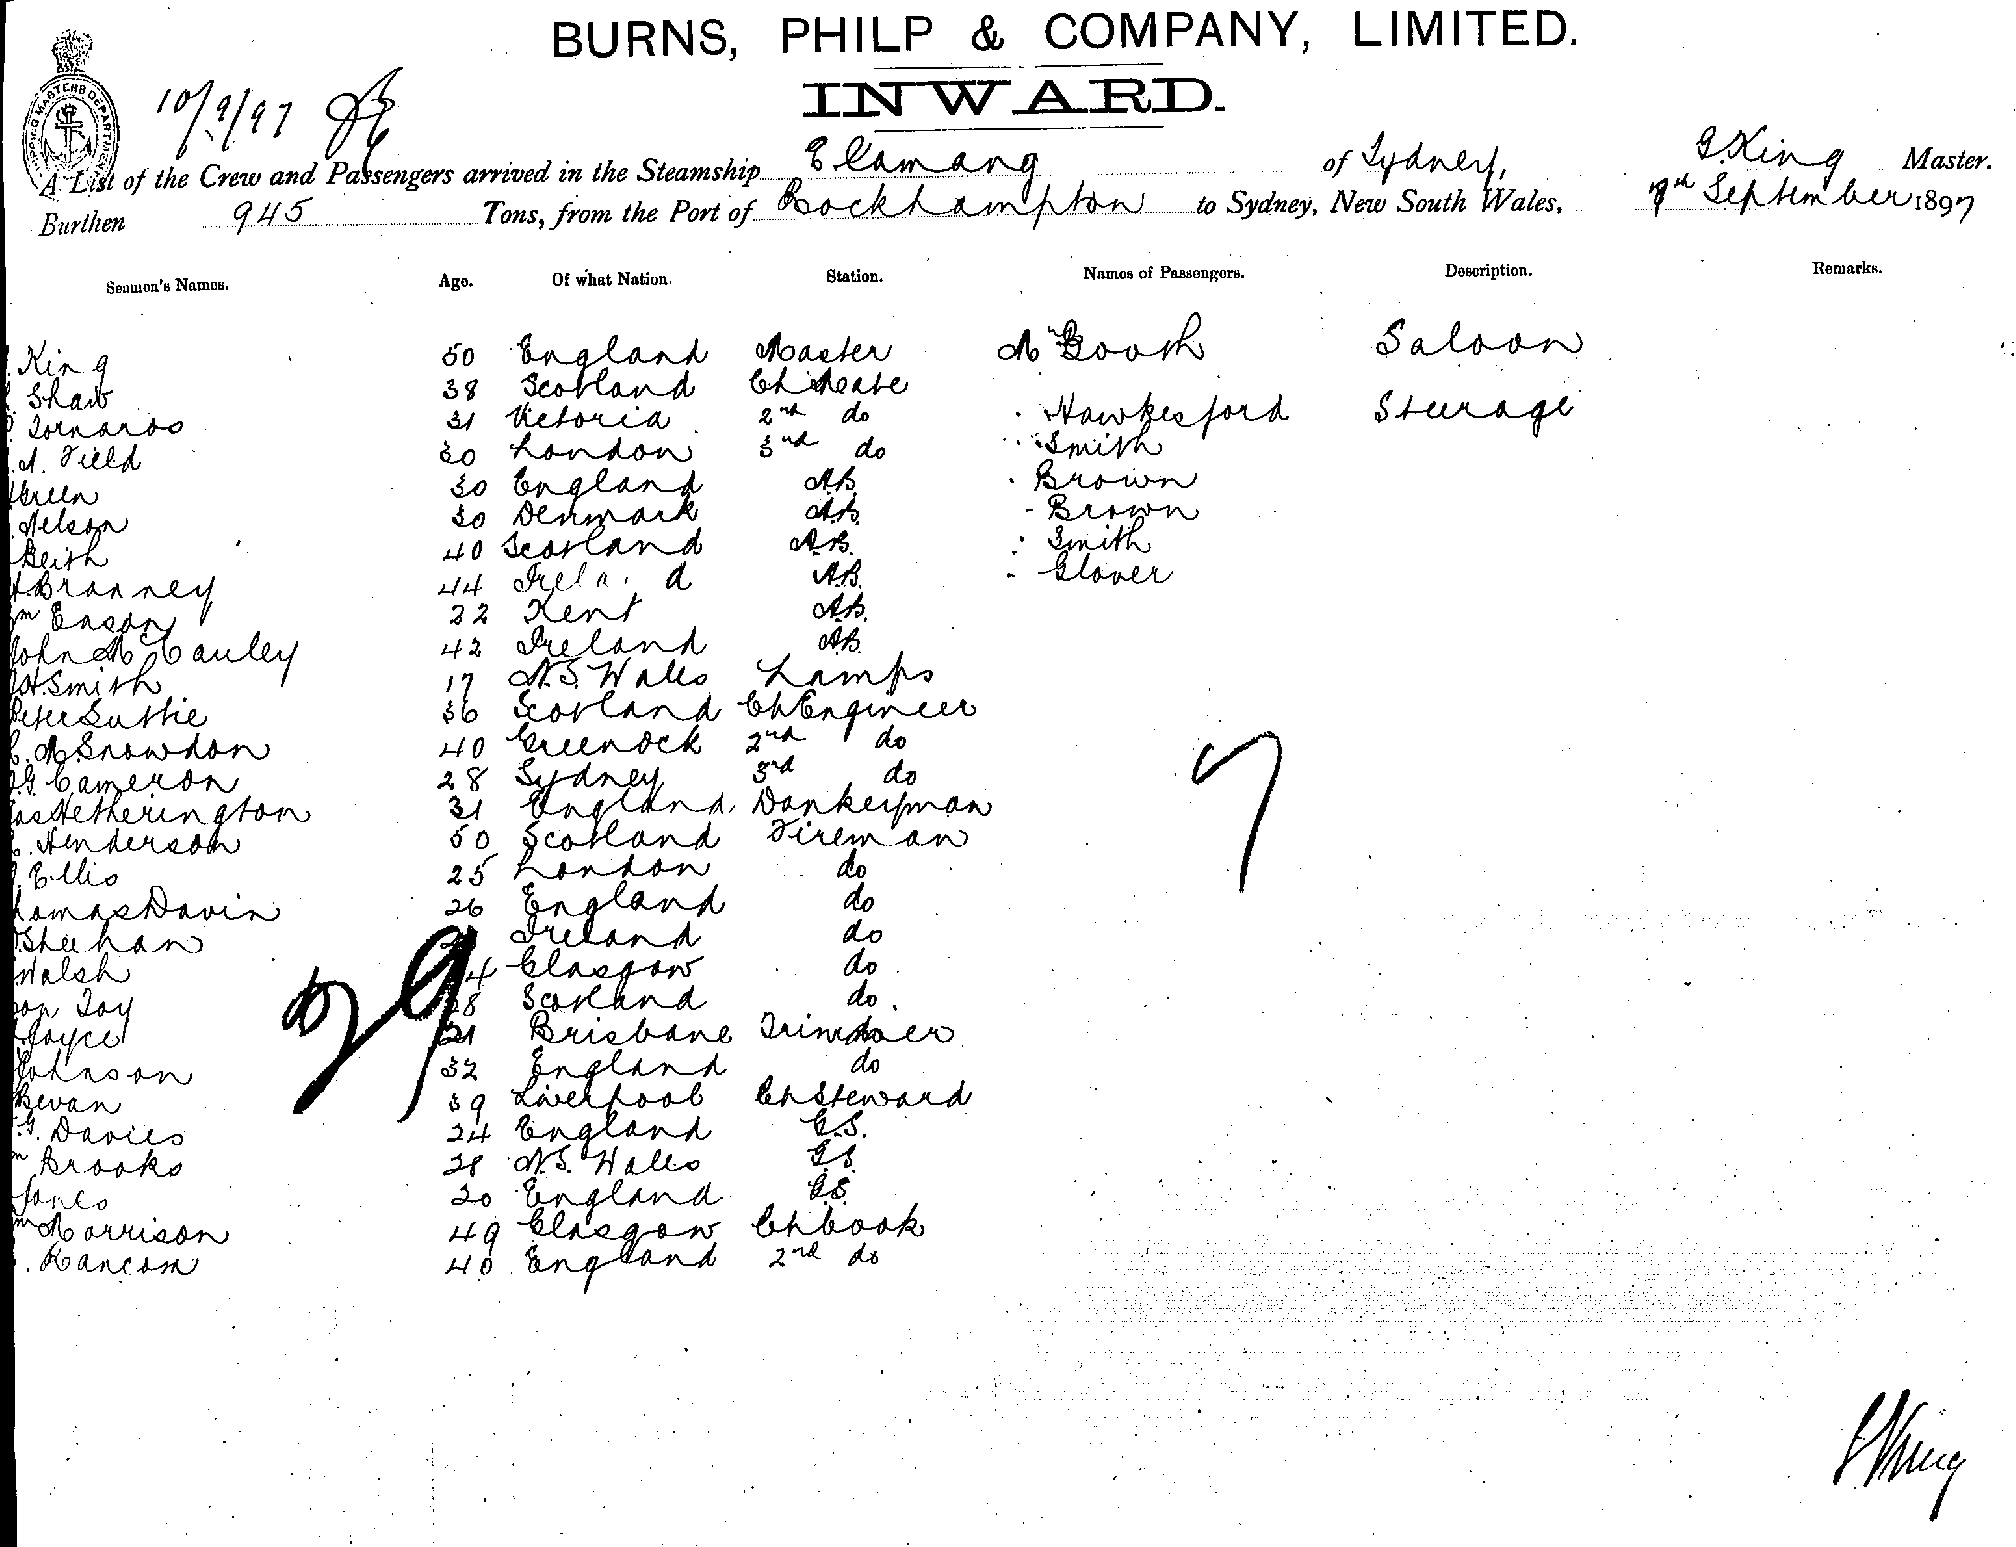 BURNS, PHILP & COMPANY, LIMITED.
INWARD.
10/9/97
A List of the Crew and Passengers arrived in the Steamship Elamang of Sydney, G. King Master.
Burthen 945 Tons, from the Port of Rockhampton to Sydney, New South Wales, September 1897
Seamen's Names. Age. Of what Nation. Station. Names of Passengers. Description. Remarks.
King 50 England Master Mr Booth Saloon
Shaw 38 Scotland Ch Mate
31 Victoria 2nd do Hawkesford Steerage
A. Field 30 London 3rd do Smith
Green 30 England A.B. Brown
Nelson 30 Denmark A.B. Brown
Keith 40 Scotland A.B. Smith
Branney 44 Irela d A.B. Glover
m Eason 22 Kent A.B.
John McCauley 42 Ireland A.B.
H. Smith 17 N.S. Wales Lamps
Peter Suttie 36 Scotland Ch Engineer
C. M. Snowdon 40 Greenock 2nd do
G. Cameron 28 Sydney 3rd do
as Hetherington 31 England Donkeyman
Henderson 50 Scotland Fireman
Ellis 25 London do
homas Davin 26 England do
Sheehan Ireland do
Walsh 4 Glasgow do
on Toy 28 Scotland do
Joyce 21 Brisbane Trimmer
Johnson 32 England do
Bevan 39 Liverpool Ch Steward
G. Davies 24 England G.S.
m Brooks 28 N.S. Wales G.S.
Jones 20 England G.S.
m Morrison 49 Glasgow Ch Cook
Rancom 40 England 2nd do
29
7
G King